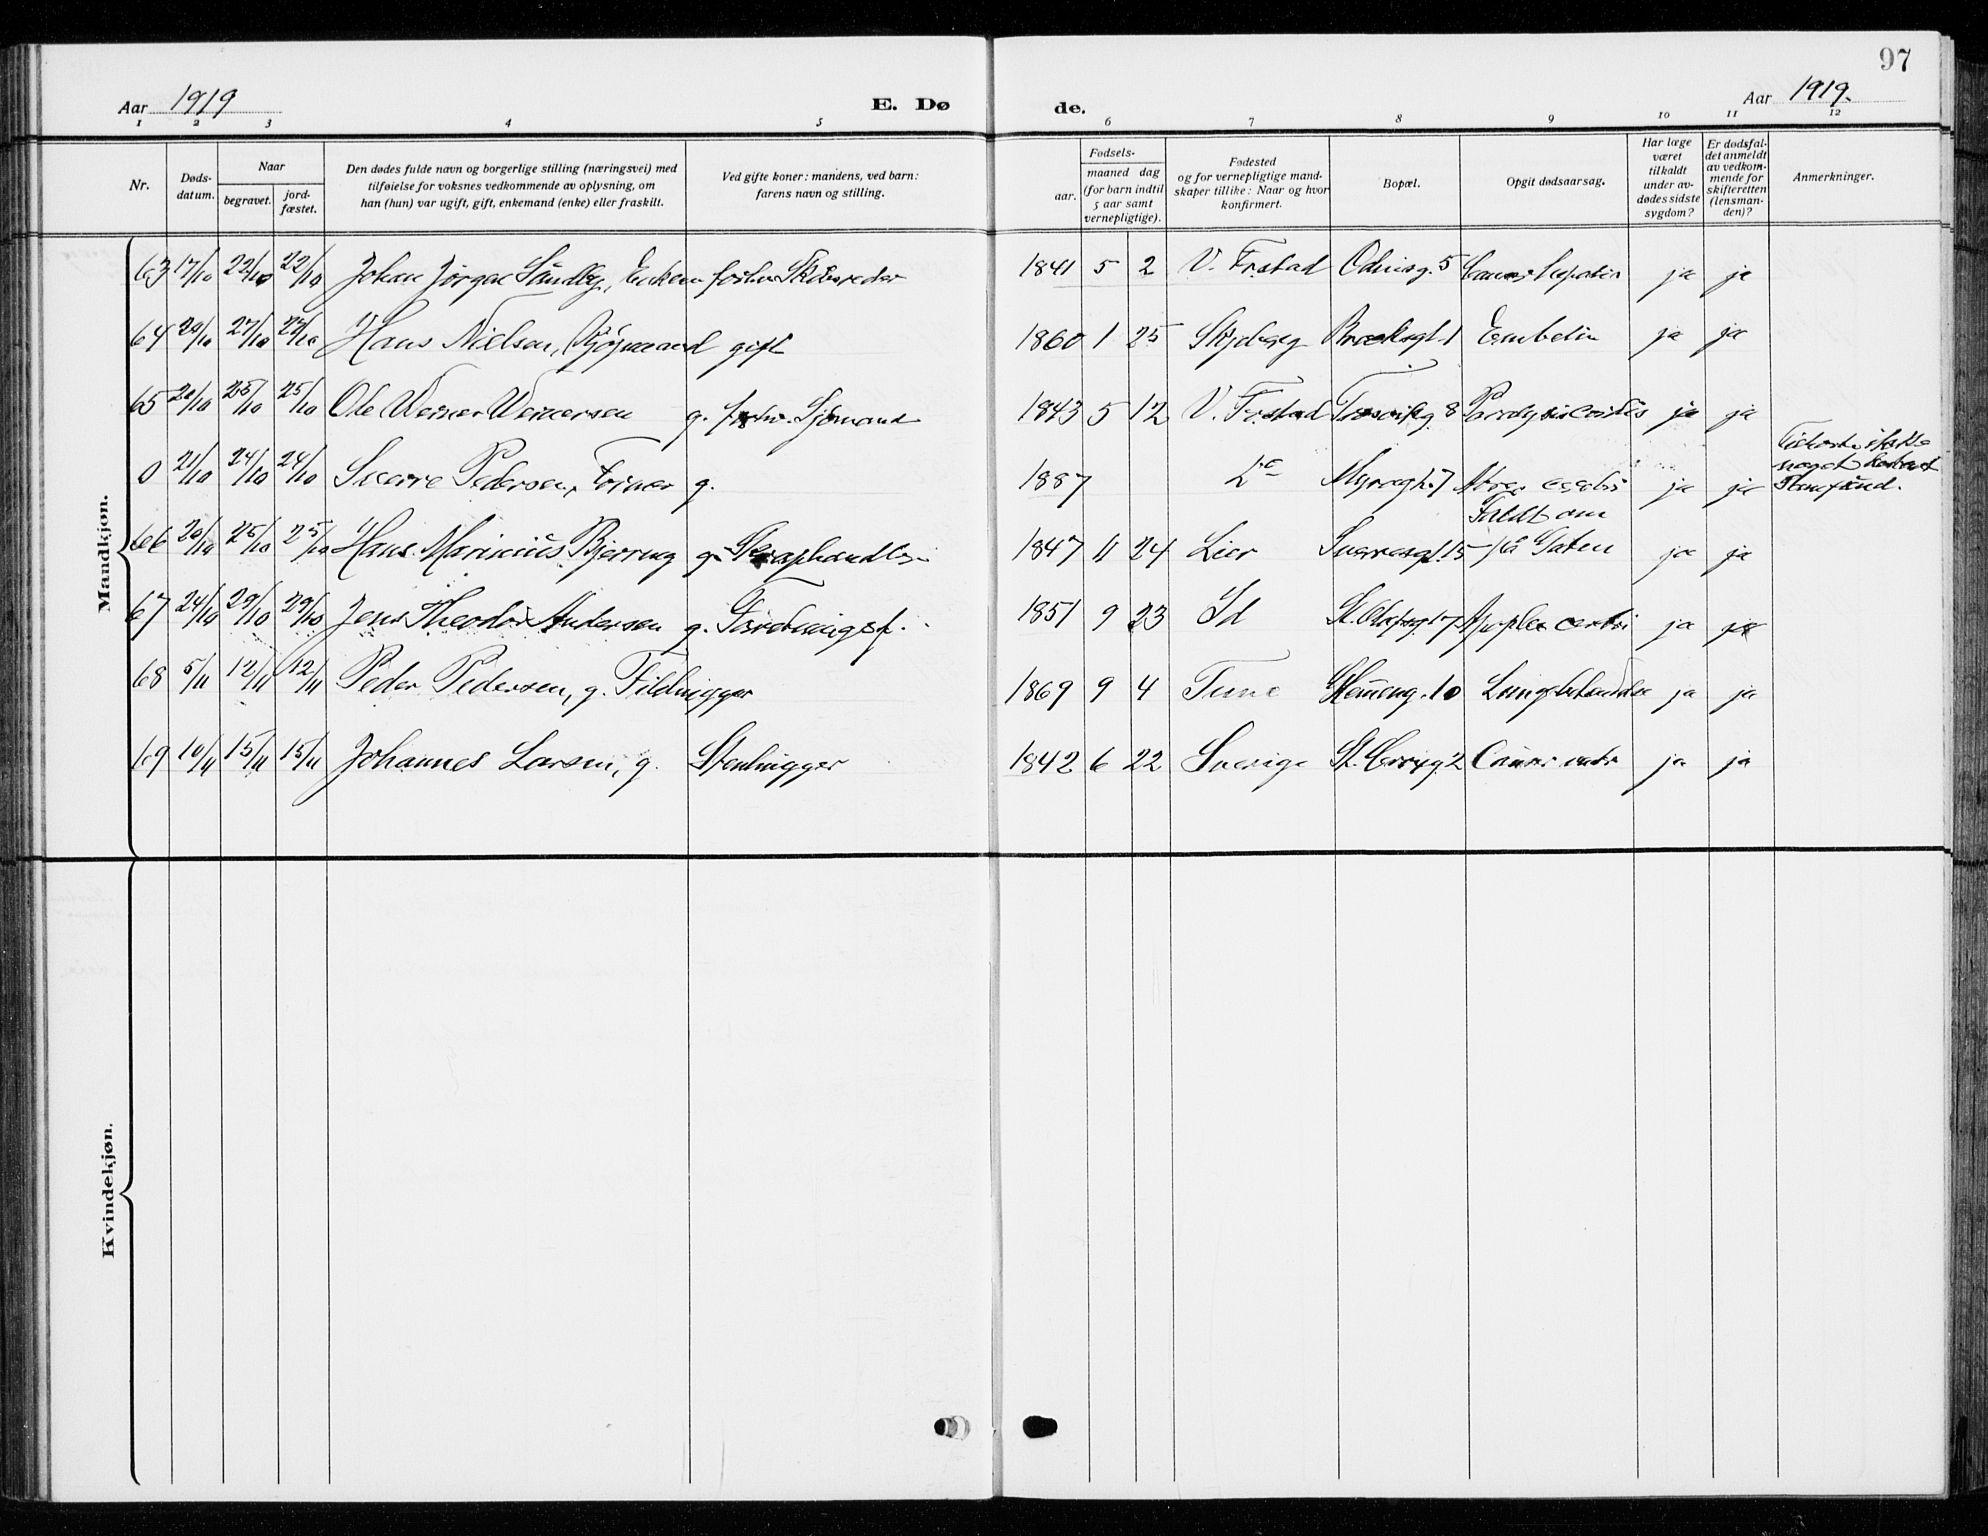 97
Aar 1919 E. Dø de. Aar 1919.
1 2 3 4 5 6 7 8 9 10 11 12
Nr.
Døds-
datum.
Naar
begravet.
jord-
fæstet.
Den dødes fulde navn og borgerlige stilling (næringsvei) med
tilføielse for voksnes vedkommende av oplysning, om
han (hun) var ugift, gift, enkemand (enke) eller fraskilt.
Ved gifte koner: mandens, ved barn:
farens navn og stilling.
Fødsels-
aar.
maaned dag
(for barn indtil
5 aar samt
vernepligtige).
Fødested
og for vernepligtige mand-
skaper tillike: Naar og hvor
konfirmert.
Bopæl.
Opgit dødsaarsag.
Har læge
været
tilkaldt
under av-
dødes sidste
sygdom?
Er dødsfal-
det anmeldt
av vedkom-
mende for
skifteretten
(lensman-
den)?
Anmerkninger.
Mandkjøn.
63 17/10 22/10 22/10 Johan Jörgen Sundby, Enkem forhv. Skibsreder 1841 5 2 V. Frstad Odinsg. 5 ja ja
64 20/10 27/10 27/10 Hans Nielsen, gift 1860 1 25 ja ja
65 20/10 25/10 25/10 Ole Werner Wernersen g. forhv. Sjömand 1843 5 12 V. Frstad Trosvikg 8 ja ja
0 21/10 24/10 24/10 Sverre Pedersen, Former g. 1887 Do ja ja
66 20/10 25/10 25/10 Hans Marinius Bjerring g. 1847 11 24 Lier Sverresgt. 15 Faldt om på Gaten ja ja
67 24/10 29/10 29/10 Jens Theodor Andersen g. 1851 9 23 Id St. Olafsg. 17 ja ja
68 5/11 12/11 12/11 Peder Pedersen, g. Filehugger 1869 9 4 Tune 10 ja ja
69 10/11 15/11 15/11 Johannes Larsen, g. Stenhugger 1842 6 22 Sverige ja ja
Kvindekjøn.